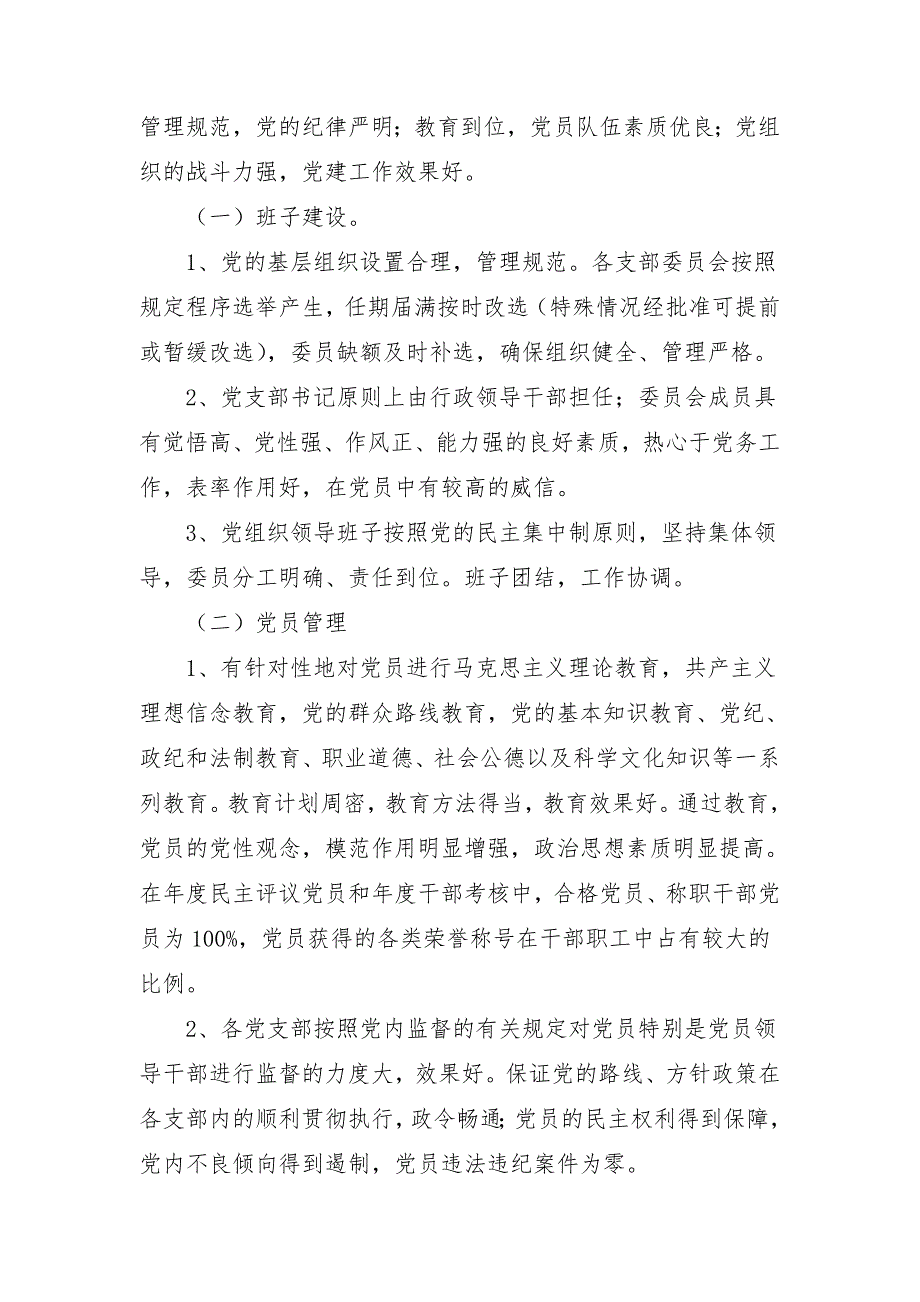 管理规范，党的纪律严明；教育到位，党员队伍素质优良；党组
织的战斗力强，党建工作效果好。
（一）班子建设。
1、党的基层组织设置合理，管理规范。各支部委员会按照
规定程序选举产生，任期届满按时改选（特殊情况经批准可提前
或暂缓改选），委员缺额及时补选，确保组织健全、管理严格。
2、党支部书记原则上由行政领导干部担任；委员会成员具
有觉悟高、党性强、作风正、能力强的良好素质，热心于党务工
作，表率作用好，在党员中有较高的威信。
3、党组织领导班子按照党的民主集中制原则，坚持集体领
导，委员分工明确、责任到位。班子团结，工作协调。
（二）党员管理
1、有针对性地对党员进行马克思主义理论教育，共产主义
理想信念教育，党的群众路线教育，党的基本知识教育、党纪、
政纪和法制教育、职业道德、社会公德以及科学文化知识等一系
列教育。教育计划周密，教育方法得当，教育效果好。通过教育，
党员的党性观念，模范作用明显增强，政治思想素质明显提高。
在年度民主评议党员和年度干部考核中，合格党员、称职干部党
员为 100%，党员获得的各类荣誉称号在干部职工中占有较大的
比例。
2、各党支部按照党内监督的有关规定对党员特别是党员领
导干部进行监督的力度大，效果好。保证党的路线、方针政策在
各支部内的顺利贯彻执行，政令畅通；党员的民主权利得到保障，
党内不良倾向得到遏制，党员违法违纪案件为零。